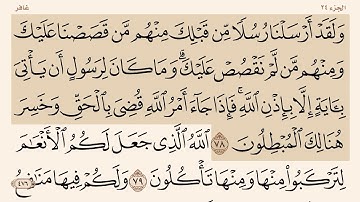 الجزء ٢٤ غافر
وَلَقَدْ أَرْسَلْنَا رُسُلًا مِّن قَبْلِكَ مِنْهُم مَّن قَصَصْنَا عَلَيْكَ
وَمِنْهُم مَّن لَّمْ نَقْصُصْ عَلَيْكَ ۗ وَمَا كَانَ لِرَسُولٍ أَن يَأْتِىَ
بِـَٔايَةٍ إِلَّا بِإِذْنِ ٱللَّهِ ۚ فَإِذَا جَآءَ أَمْرُ ٱللَّهِ قُضِىَ بِٱلْحَقِّ وَخَسِرَ
هُنَالِكَ ٱلْمُبْطِلُونَ ٧٨ ٱللَّهُ ٱلَّذِى جَعَلَ لَكُمُ ٱلْأَنْعَٰمَ
لِتَرْكَبُوا۟ مِنْهَا وَمِنْهَا تَأْكُلُونَ ٧٩ وَلَكُمْ فِيهَا مَنَٰفِعُ
٤٧٦